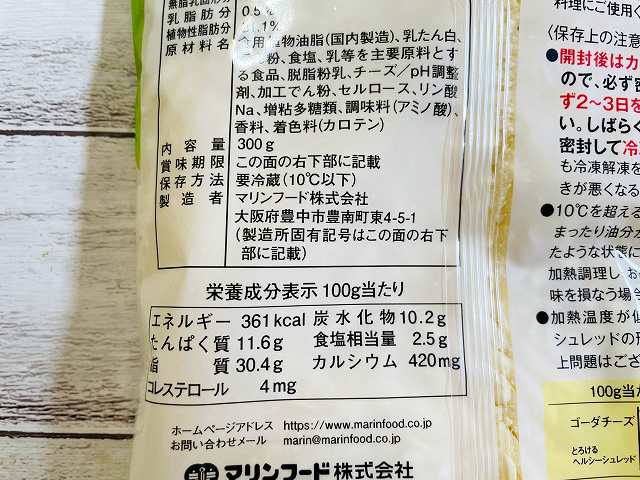 乳脂肪分 0.5%
植物性脂肪分
原材料名 食用植物油脂(国内製造)、乳たん白、
粉、食塩、乳等を主要原料とす
る食品、脱脂粉乳、チーズ/pH調整
剤、加工でん粉、セルロース、リン酸
Na、増粘多糖類、調味料(アミノ酸)、
香料、着色料(カロテン)
内容量 300g
賞味期限 この面の右下部に記載
保存方法 要冷蔵(10℃以下)
製造者 マリンフード株式会社
大阪府豊中市豊南町東4-5-1
(製造所固有記号はこの面の右下
部に記載)
栄養成分表示 100g当たり
エネルギー 361kcal 炭水化物 10.2g
たんぱく質 11.6g 食塩相当量 2.5g
脂質 30.4g カルシウム 420mg
コレステロール 4mg
ホームページアドレス https://www.marinfood.co.jp
お問い合わせメール marin@marinfood.co.jp
マリンフード株式会社
料理にご使用く
〈保存上の注意
●開封後はカ
ので、必ず密
ず2~3日を
い。しばらく
密封して冷
も冷凍解凍を
きが悪くなる
●10℃を超え
まったり油分が
たような状態に
加熱調理し
味を損なう場
●加熱温度が低
シュレッドの形
上問題はござ
100g当
ゴーダチーズ
とろける
ヘルシーシュレッド